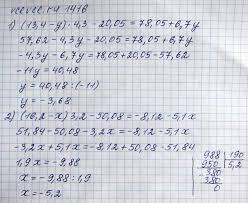 1416
1) (13,4 - y) · 4,3 - 20,05 = 78,05 + 6,7y
57,62 - 4,3y - 20,05 = 78,05 + 6,7y
-4,3y - 6,7y = 78,05 + 20,05 - 57,62
-11y = 40,48
y = 40,48 : (-11)
y = -3,68
2) (16,2 - x) 3,2 - 50,08 = -8,12 - 5,1x
51,84 - 50,08 - 3,2x = -8,12 - 5,1x
-3,2x + 5,1x = -8,12 + 50,08 - 51,84
1,9x = -9,88
x = -9,88 : 1,9
x = -5,2
988 | 190
950 | 5,2
380
380
0